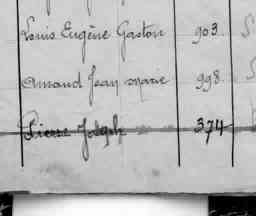 Louis Eugène Gaston 903
Amand Jean Marie 998
Pierre Joseph 374